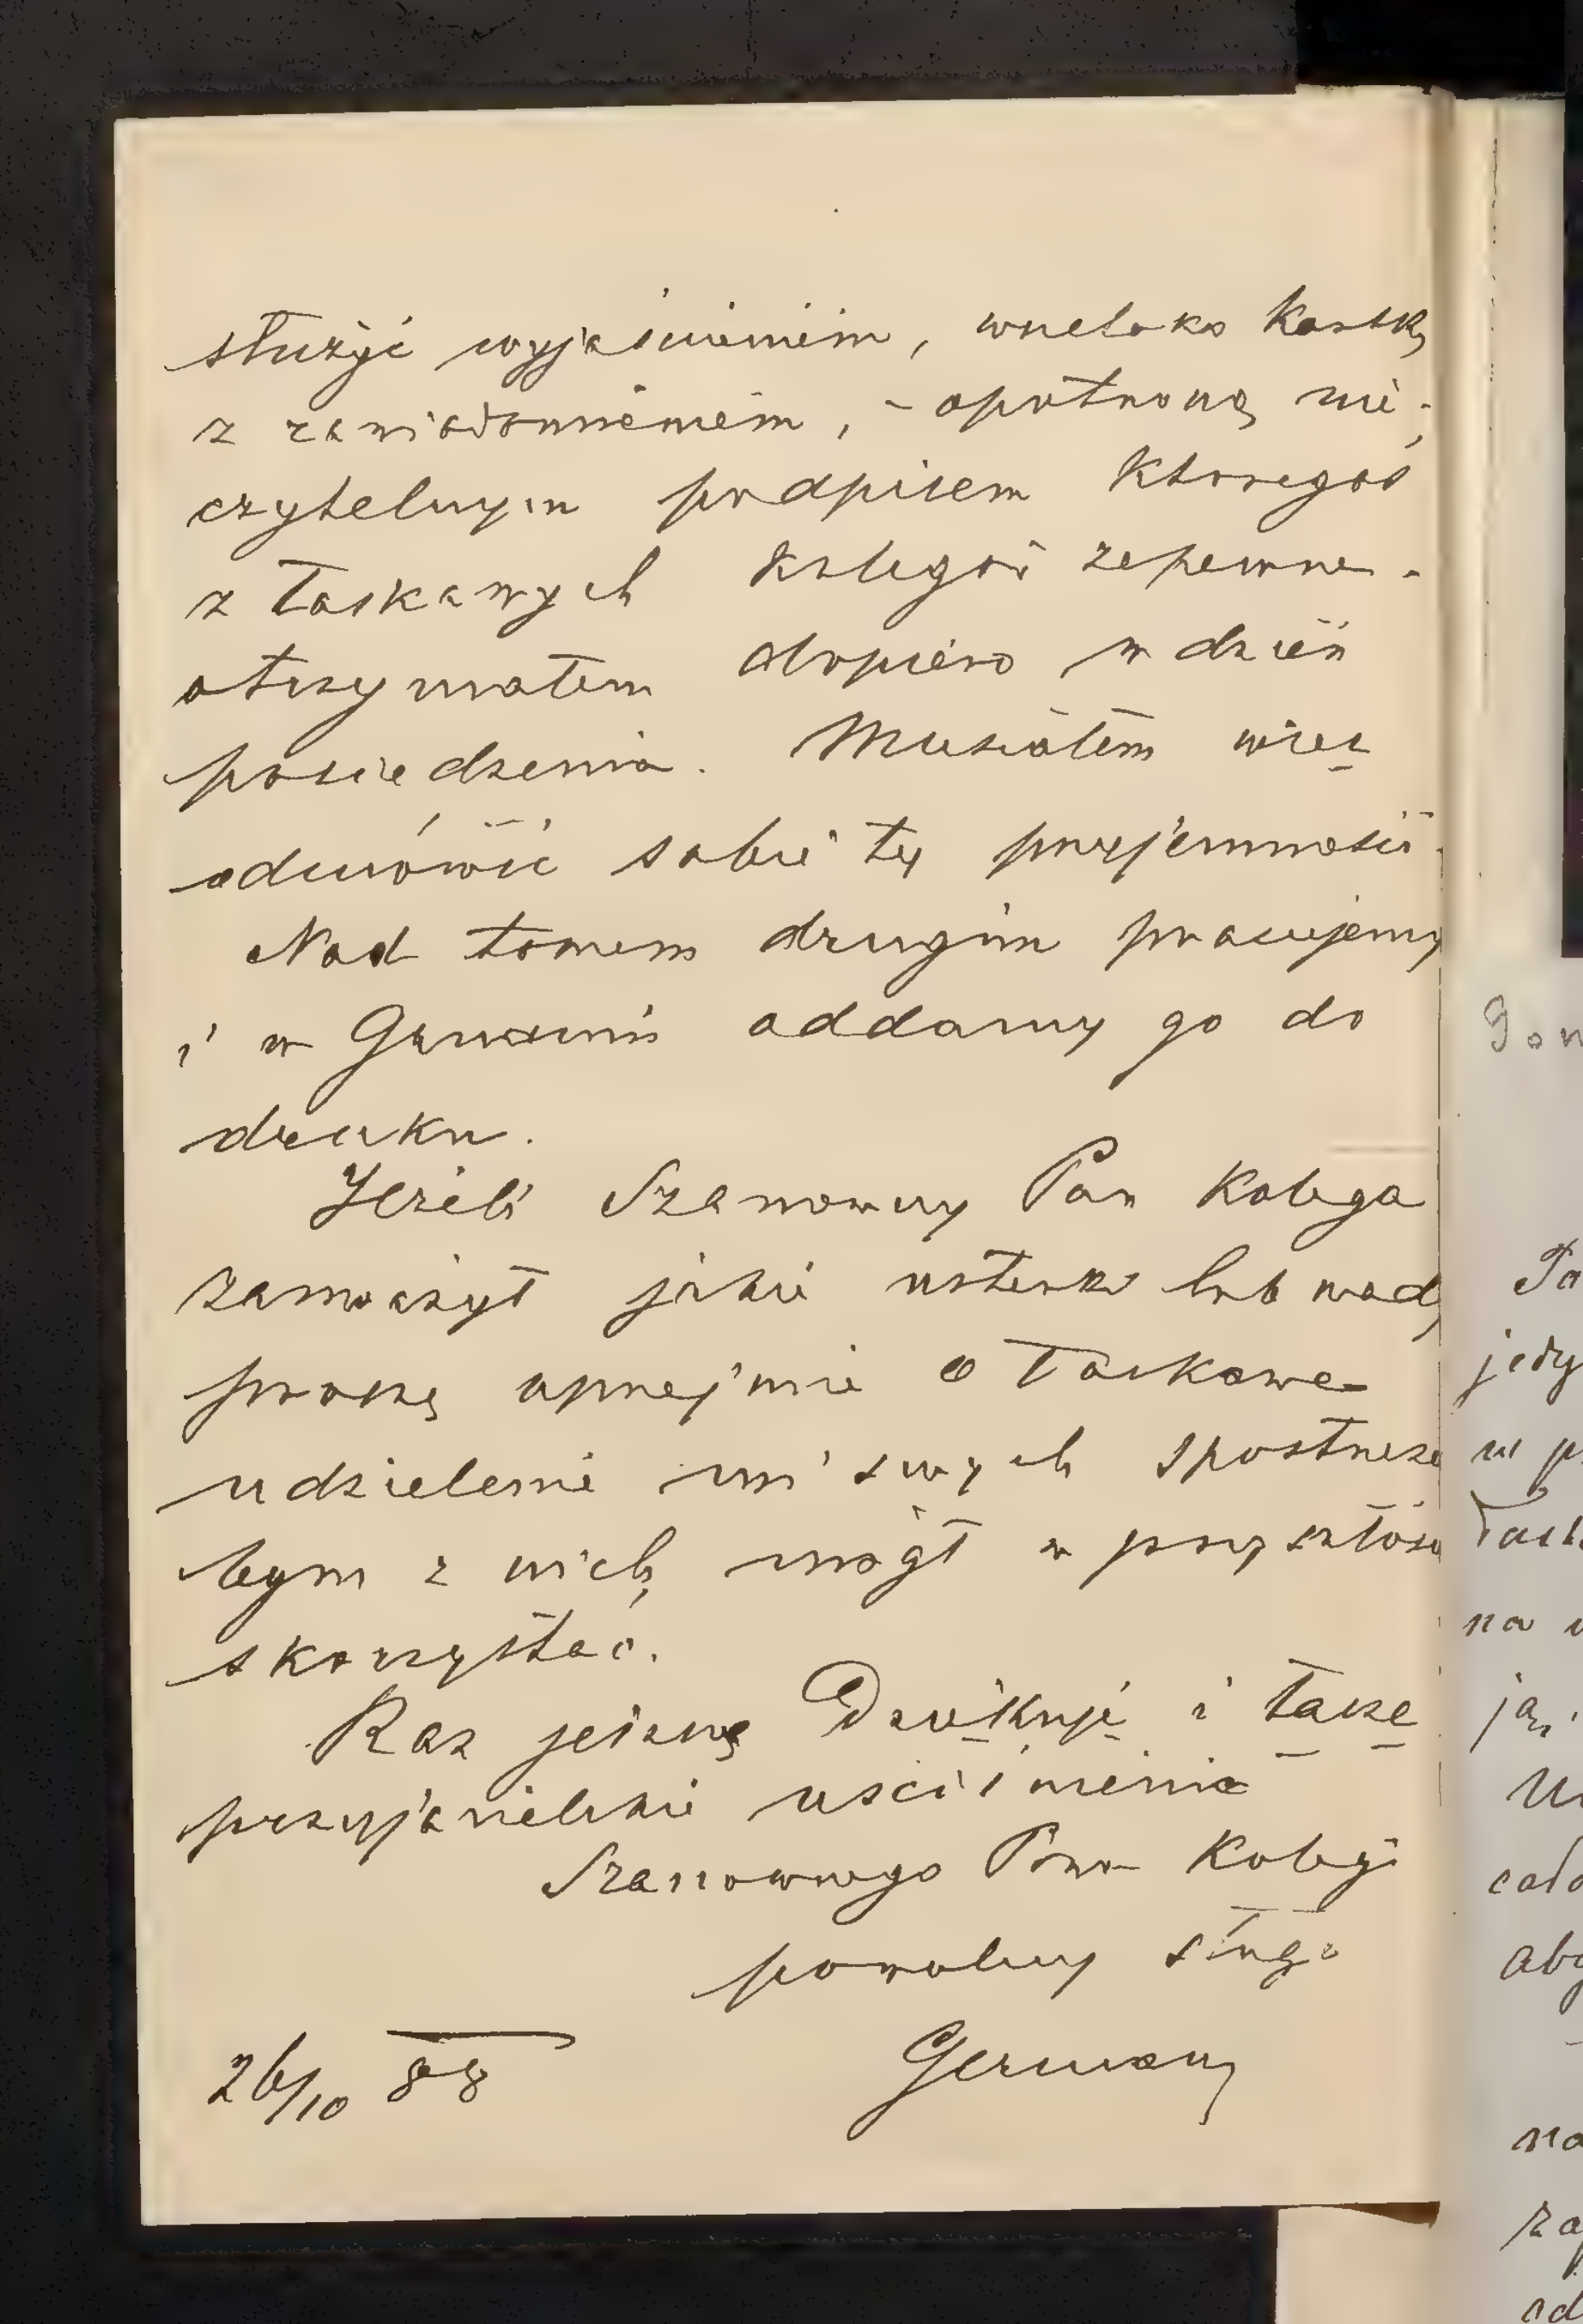 służyć wyjaśnieniem, wszelako kartkę
z zawiadomieniem, - opatrzoną nie-
czytelnym podpisem któregoś
z łaskawych kolegów zapewne -
otrzymałem dopiero w dzień
posiedzenia. Musiałem więc
odmówić sobie tej przyjemności.
Nad tomem drugim pracujemy
i w Grudniu oddamy go do
druku.
Jeżeli Szanowny Pan Kolega
zauważył jakie usterki lub wady
proszę uprzejmie o łaskawe
udzielenie mi swych spostrzeże
bym z nich mógł w przyszłości
skorzystać.
Raz jeszcze Dziękuję i łączę
przyjacielskie uściśnienia
Szanownego Pana Kolegi
powolny sługa
26/10 88 German